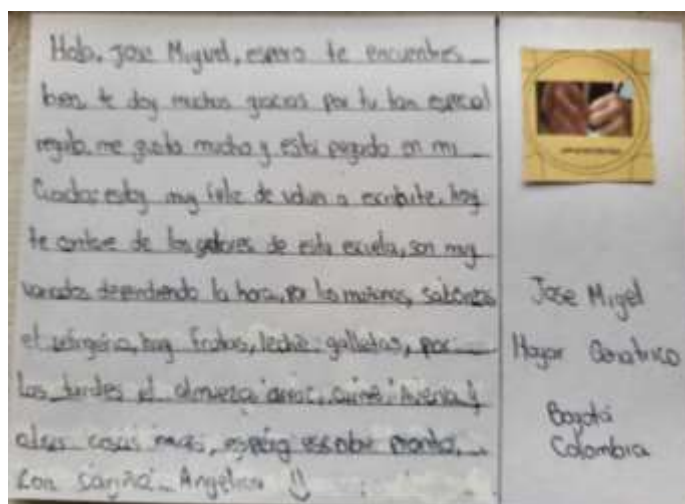 Hola, Jose Miguel, espero te encuentres
bien, te doy muchas gracias por tu tan especial
regalo, me gusto mucho y esta pegado en mi
estoy muy feliz de volver a escribirte, hoy
te contare de los olores de esta escuela, son muy
variados dependiendo la hora, por las mañanas,
el refrigerio, hay frutas, leche, galletas, por
las tardes el almuerzo arroz, carne, Avena y
otras cosas mas, espero escribir pronto,
Con cariño Angelica
Jose Migel
Hogar Geriatrico
Bogotá
Colombia